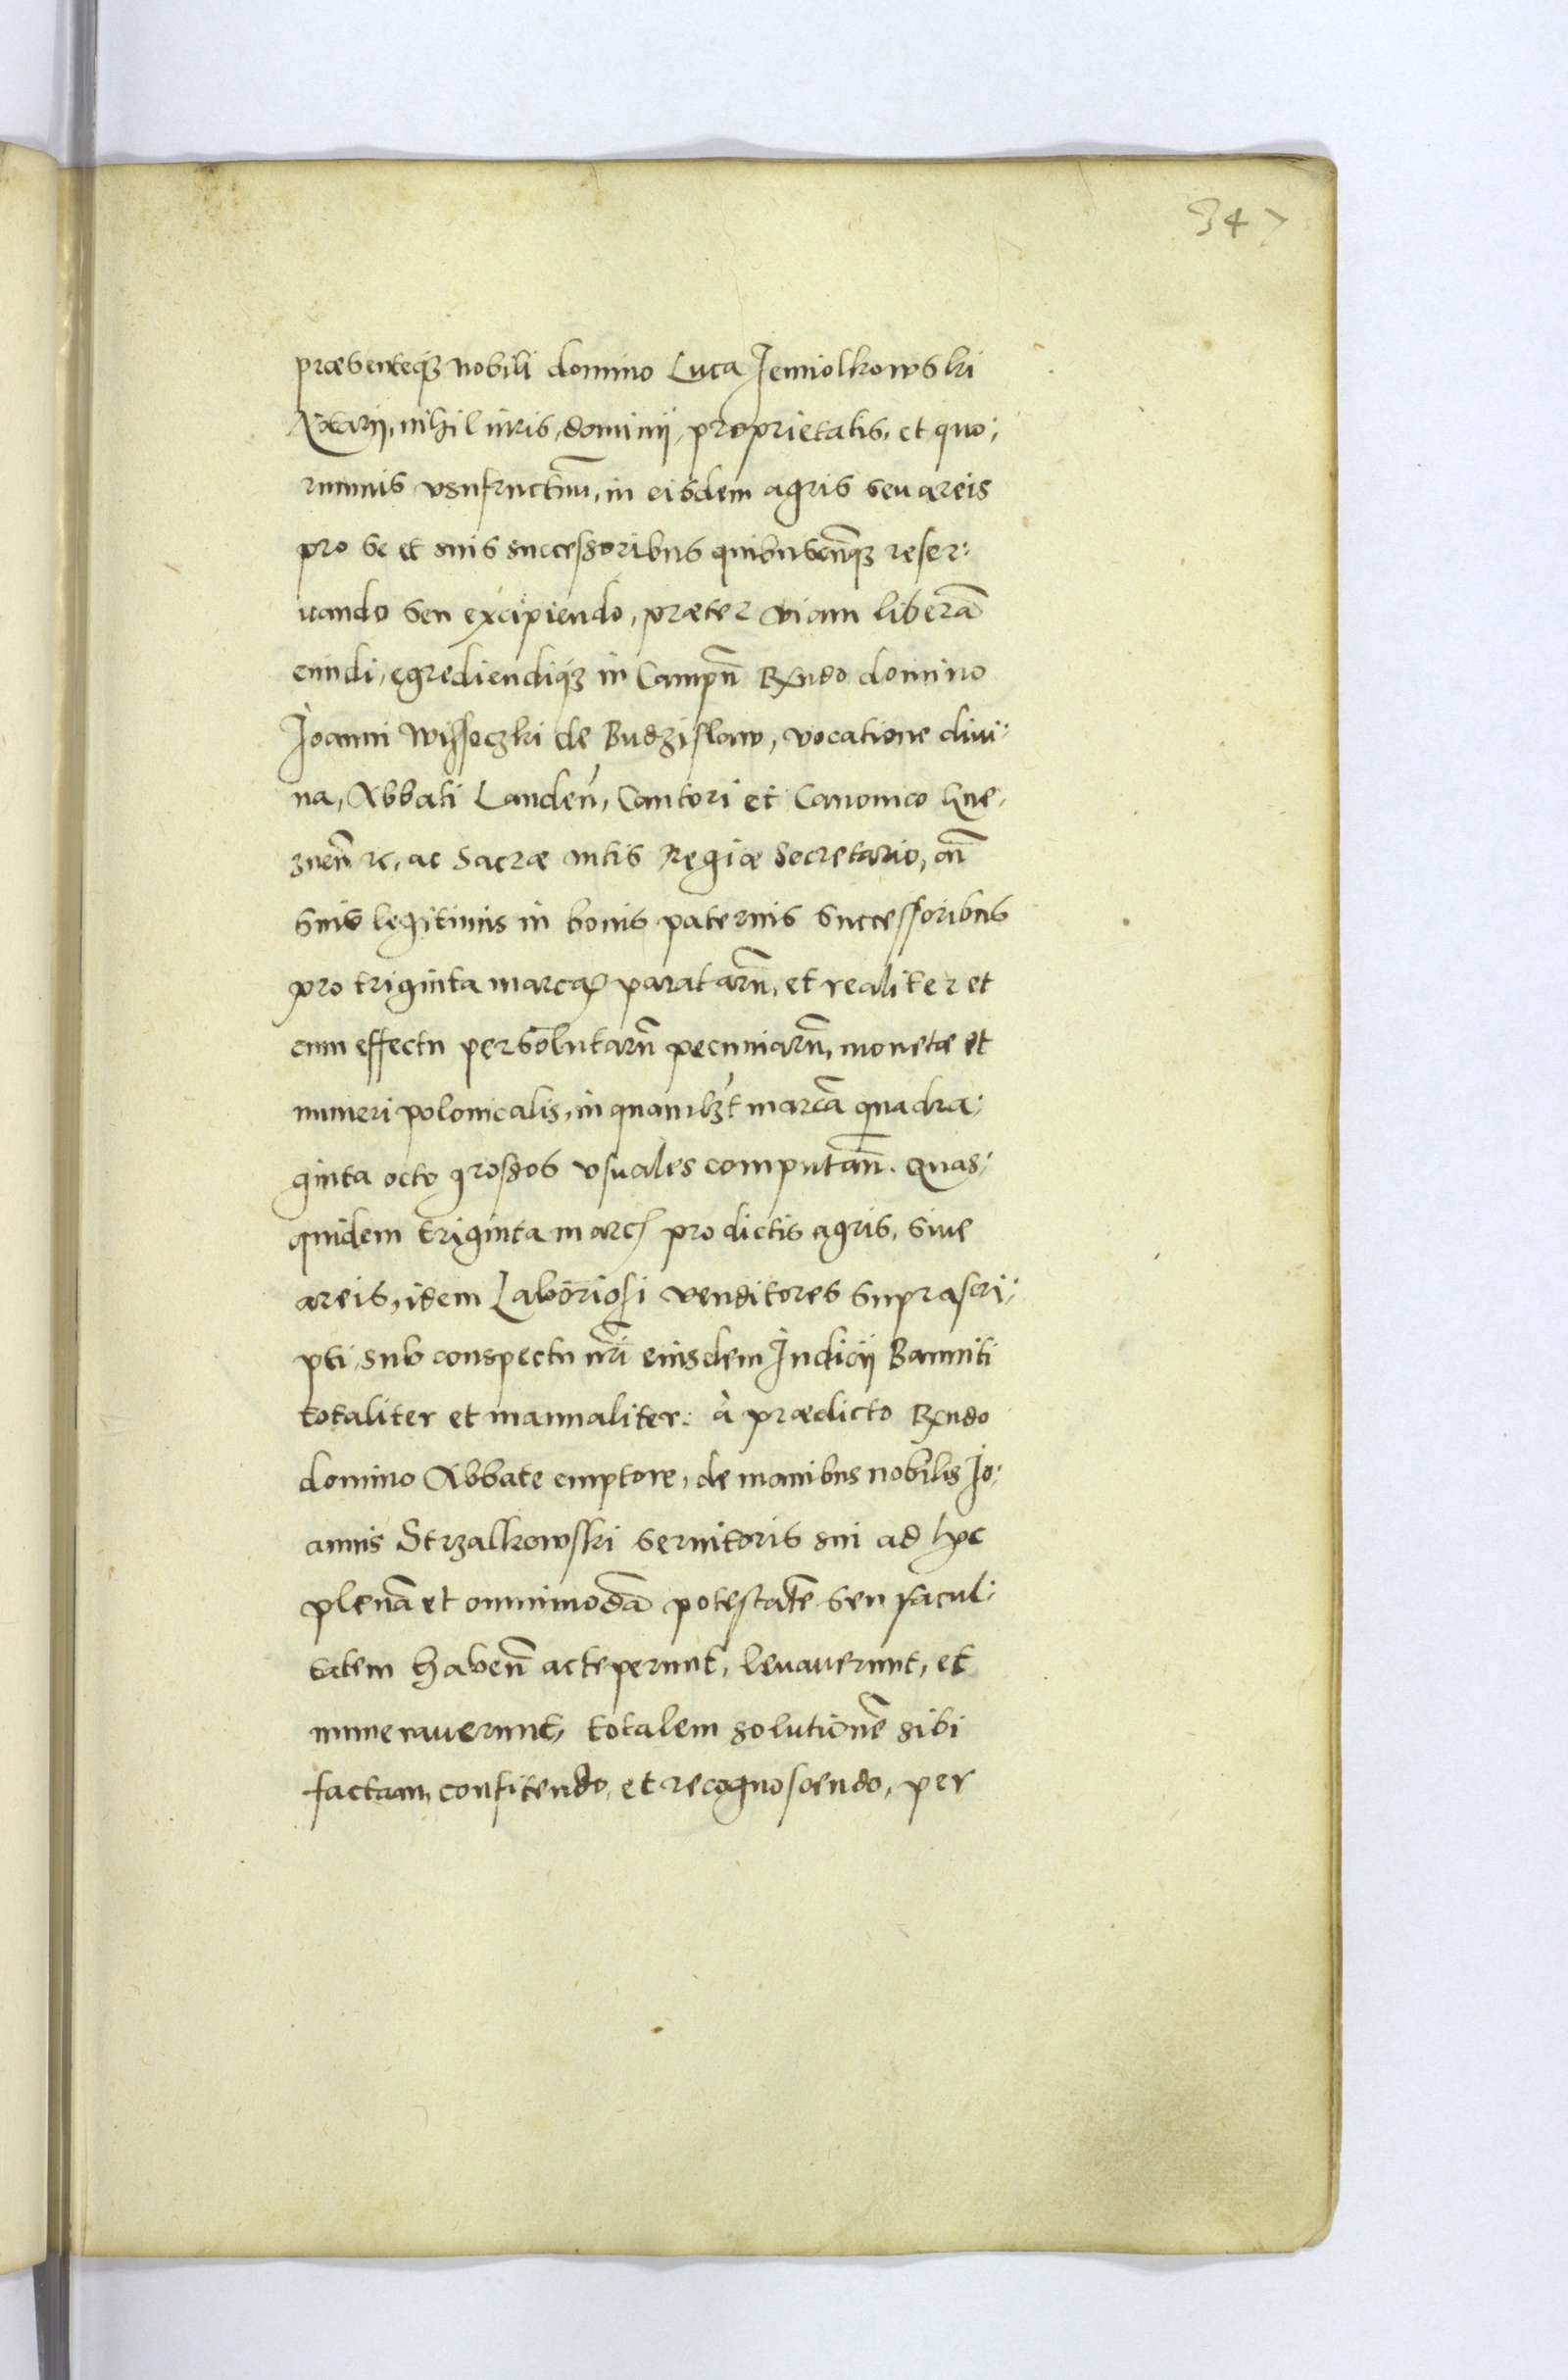 347
præsenteq₃ nobili domino Luca Jemiolkowski
Notarij, nihil iuris, dominij, proprietatis, et quo:
rumuis vsufructuū, in eisdem agris seu areis
pro se et suis successoribus quibuscūq₃ reser:
uando seu excipiendo, præter viam liberā
eundi, egrediendiq₃ in Campū Rx̄ndo domino
Joanni Wissoczki de Budzislaw, vocatione diui:
na, Abbati Landeń, Cantori et Canonico Gne:
znen̄ ꝛc, ac Sacræ Mtis Regiæ Secretario, cū
suis legitimis in bonis paternis successoribus
pro triginta marcaꝝ paratarū, et realiter et
cum effectu persolutarū pecuniarū, monetæ et
numeri polonicalis, in quamlꝫt marcā quadra:
ginta octo grossos vsuales computan̄. Quas:
quidem triginta marcꝭ pro dictis agris, siue
areis, idem Laboriosi venditores suprascri:
pti, sub conspectu nr̄i eiusdem Iudicij Banniti
totaliter et manualiter: à prædicto Rx̄ndo
domino Abbate emptore, de manibus nobilis Jo:
annis Strzalkowski seruitoris sui ad hoc
plenā et omnimodā potestatē seu facul:
tatem haben̄ acceperunt, leuauerunt, et
numerauerunt, totalem solutionē sibi
factam, confitendo, et recognoscendo, per